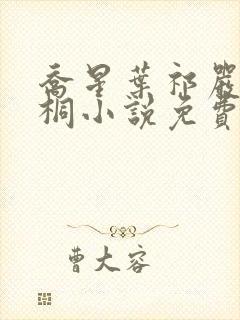 喬星葉祁嚴
桐小說免費
曹大容